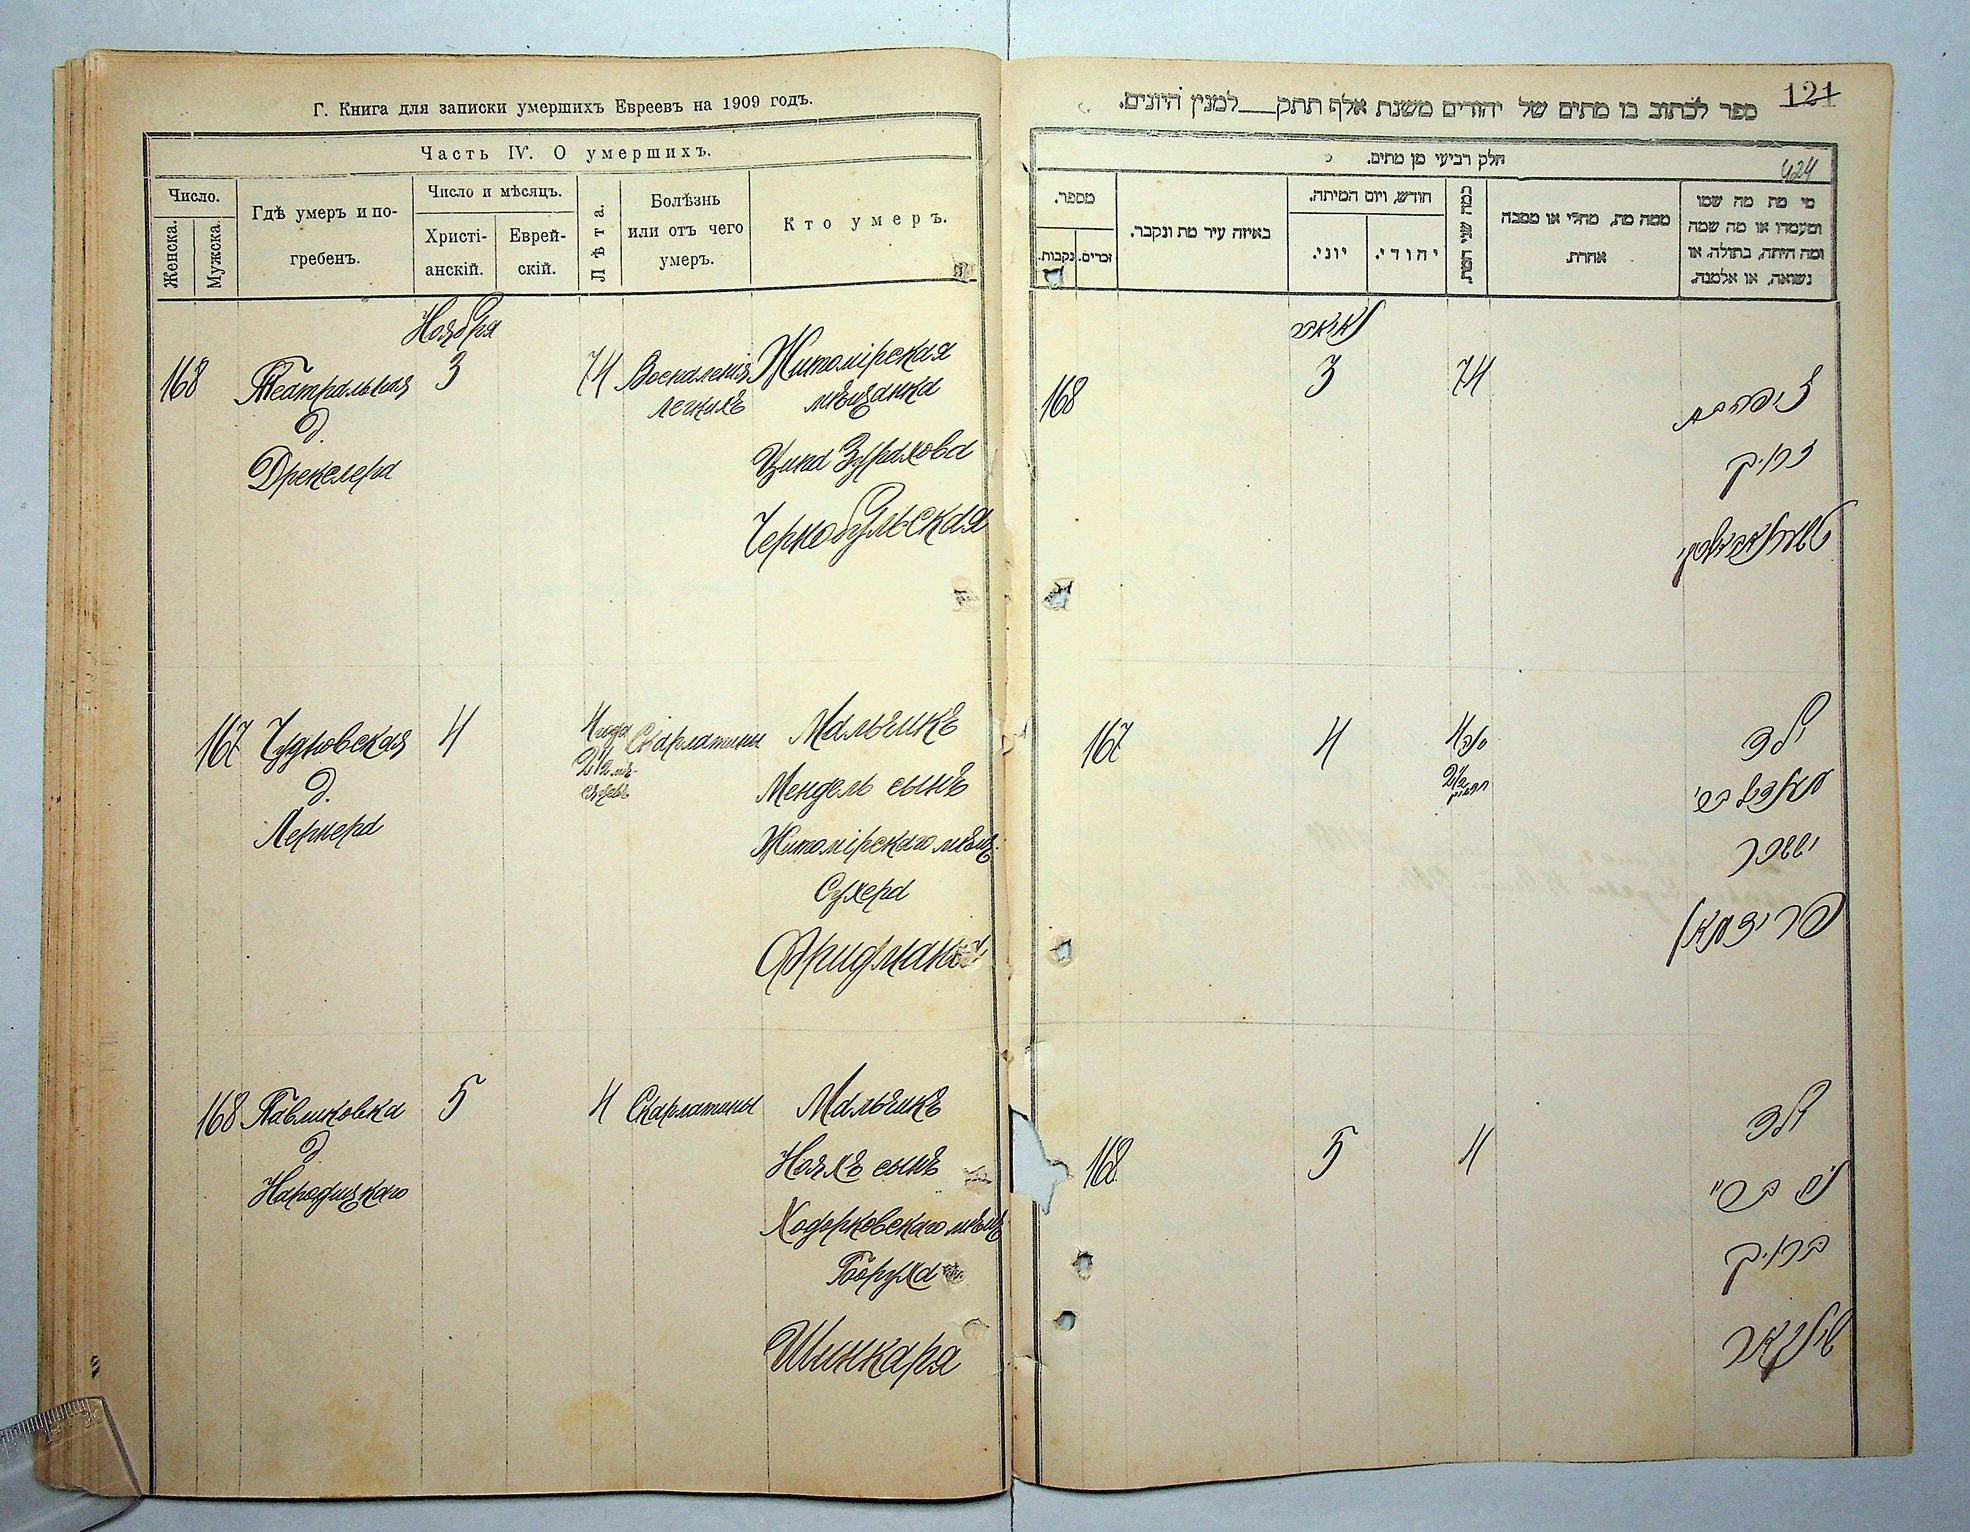 Г. Книга для записки умершихъ Евреевъ на 1909 годъ.
Часть IV. О умершихъ.
Число.
Женска.
Мужска.
Гдѣ умеръ и по-
гребенъ.
Число и мѣсяцъ.
Христі-
анскій.
Еврей-
скій.
Лѣта.
Болѣзнь
или отъ чего
умеръ.
Кто умеръ.
Ноября
168
Театральная
д.
Дрекслера
3
74
Воспаленія
легкихъ
Житомірская
мѣщанка
Ципа Зурахова
Чернобульская
167
Чудновская
д.
Лернера
4
4 года
2 1/2 мѣ-
сяцевъ
Скарлатины
Мальчикъ
Мендель сынъ
Житомірскаго мѣщ.
Сухера
Фридмана
168
Павликовка
д
Народицкаго
5
4
Скарлатины
Мальчикъ
Нояхъ сынъ
Ходорковскаго мѣщ.
Боруха
Шинкаря
121
ספר לכתוב בו מתים של יהודים משנת אלף תתק___למנין היונים.
חלק רביעי מן מתים.
424
מי מת מה שמו
ומעמדו או מה שמה
ומה היתה, בתולה, או
נשואה, או אלמנה.
ממה מת, מחלי או מסבה
אחרת.
כמה שני המת.
חודש, ויום המיתה.
יהודי.
יוני.
באיזה עיר מת ונקבר.
מספר.
זכרים.
נקבות.
168
3
74
167
4
4
2 1/2
ילד
מענדיל בר'
יששכר
פרידמאן
168
5
4
ילד
נח בר'
ברוך
שינקאר